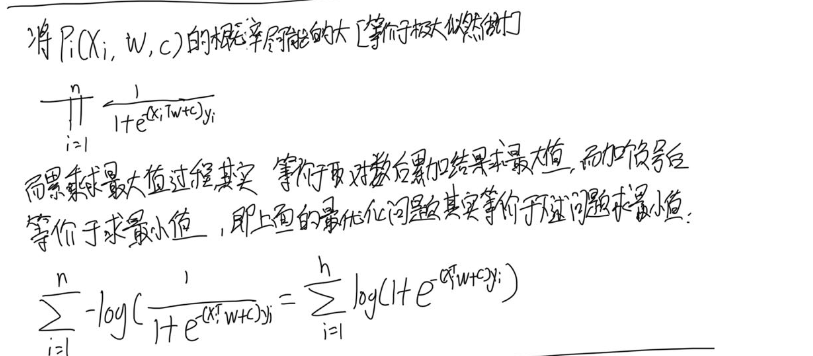 将 Pi(Xi, W, c)的概率尽可能的大 [等价于极大似然估计]
n
∏ 1 / 1+e^-(Xi^T w+c)yi
i=1
而累乘求最大值过程其实 等价于取对数后累加结果求最大值, 而加负号后
等价于求最小值 , 即上面的最优化问题其实等价于下述问题求最小值:
n ∑ i=1 -log( 1 / 1+e^-(Xi^T w+c)yi = n ∑ i=1 log(1+e^-(Xi^T w+c)yi)